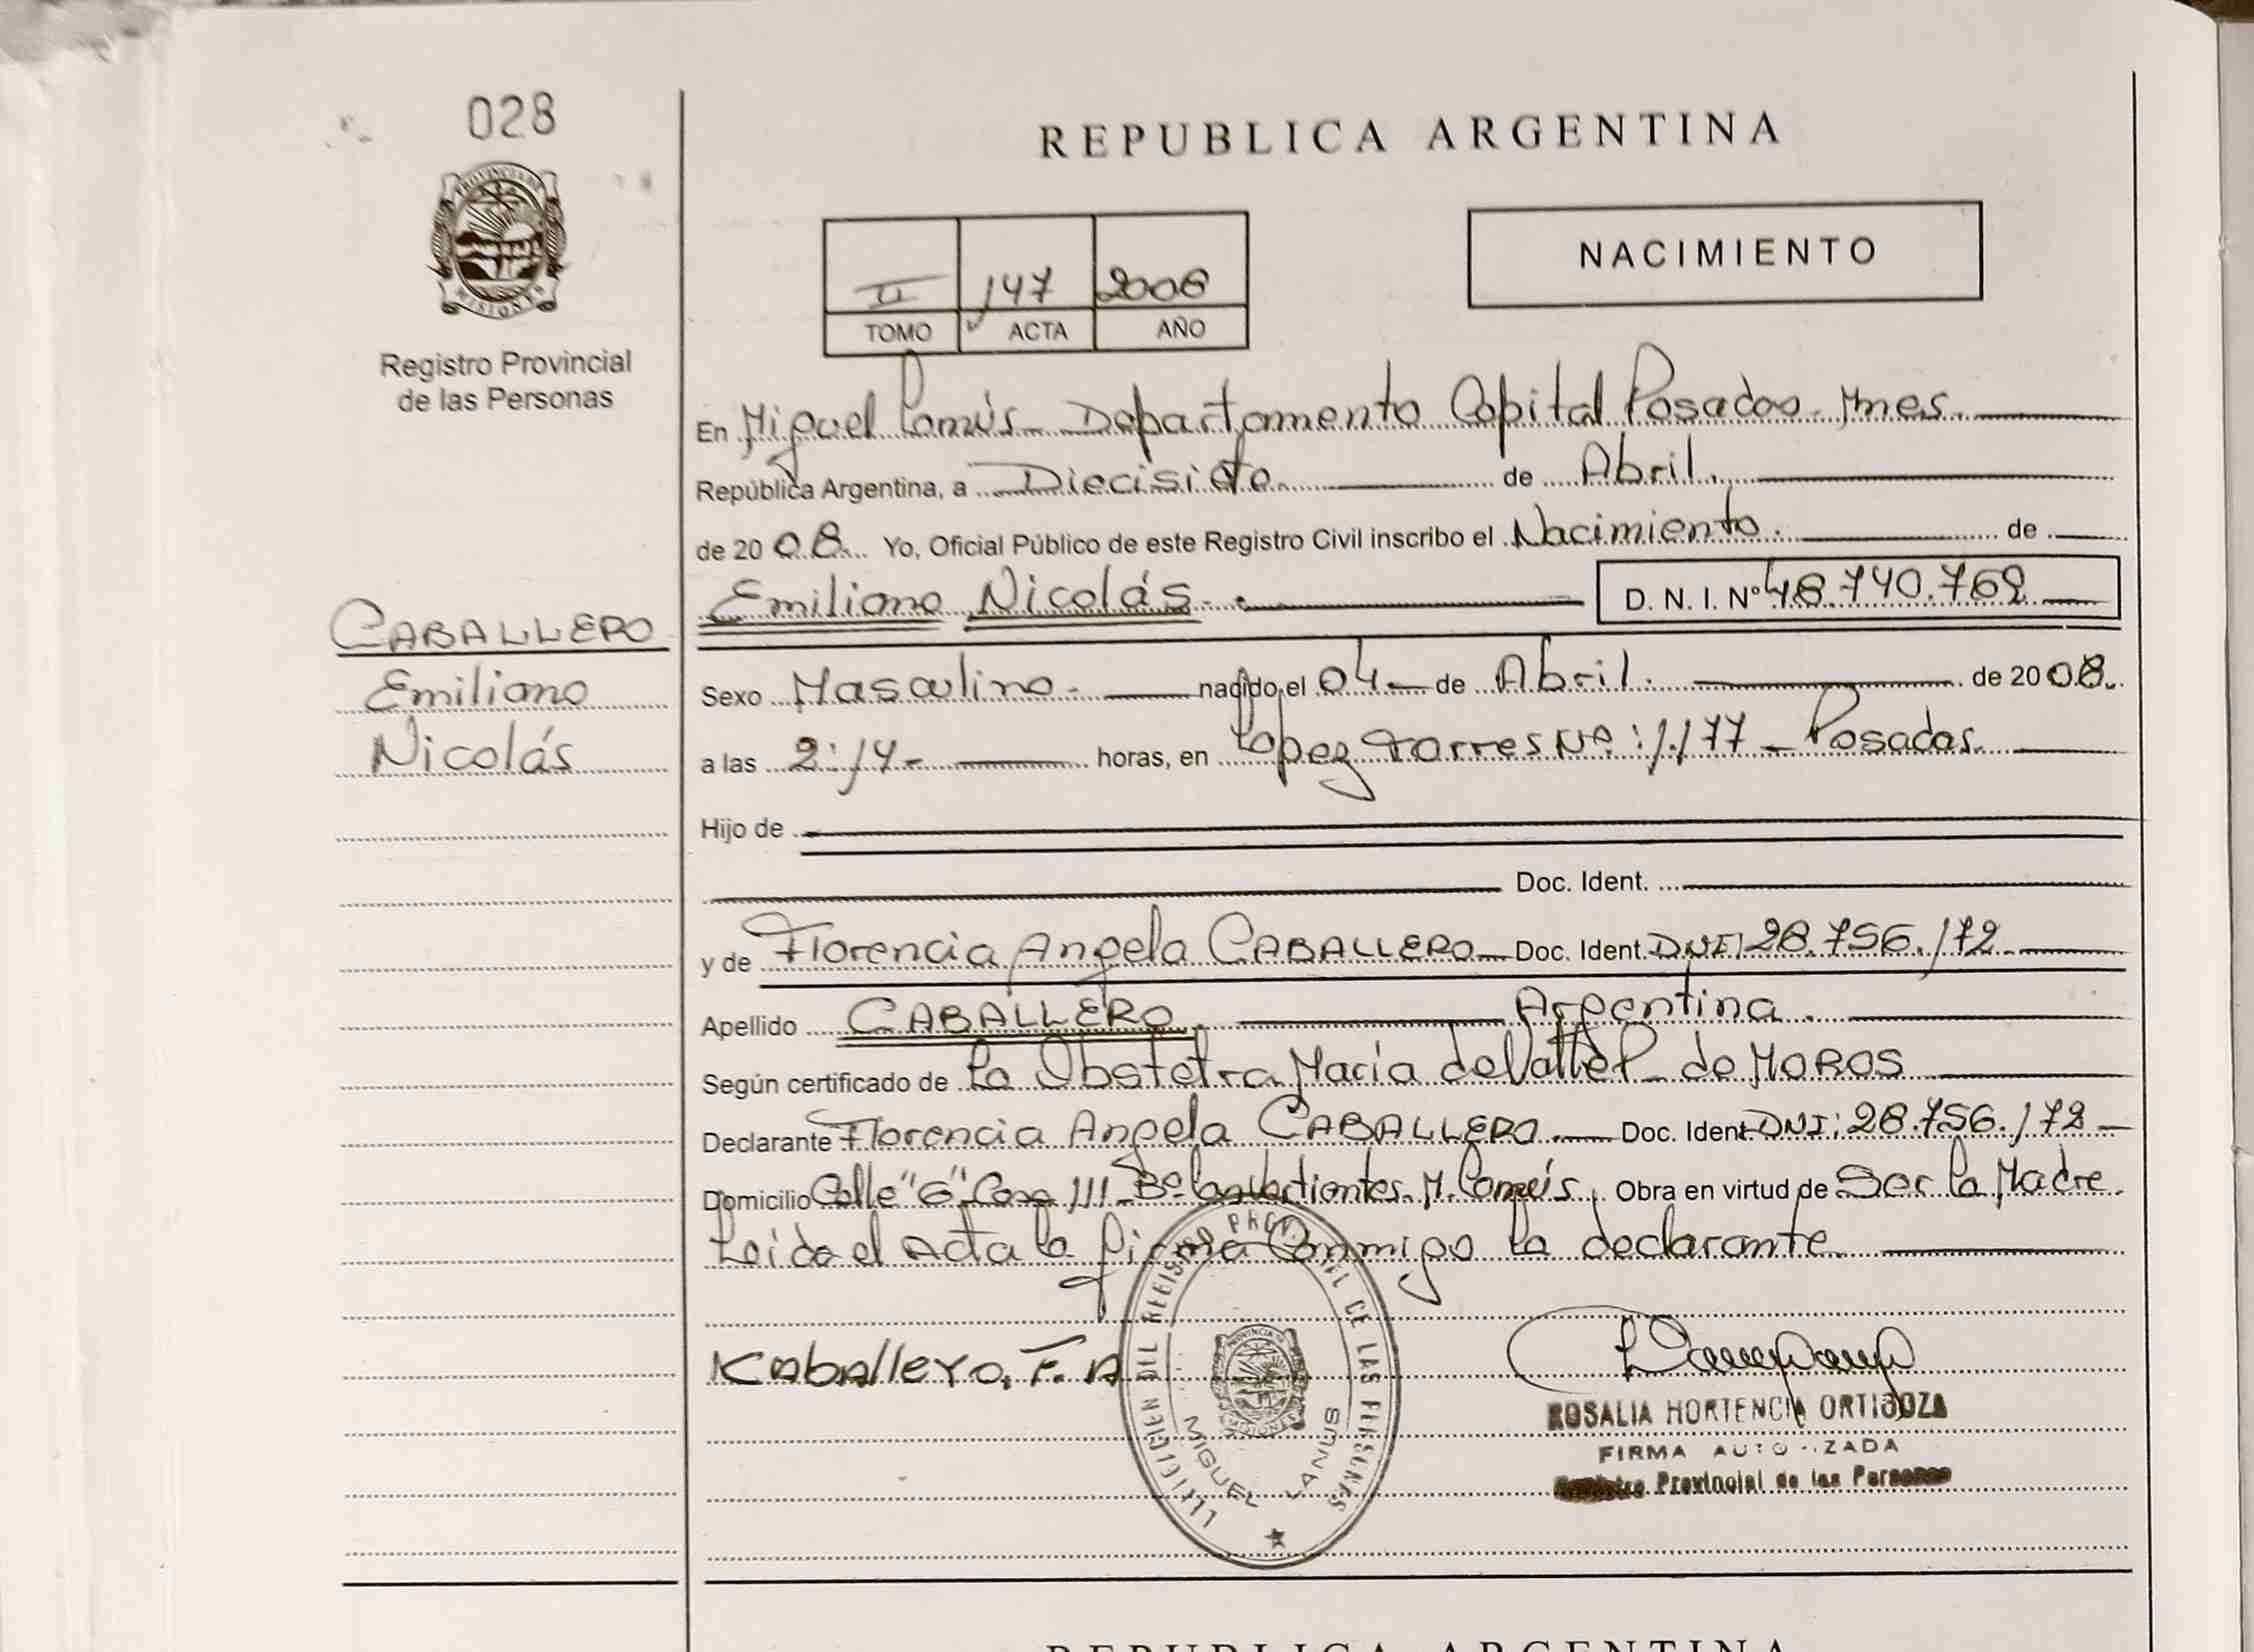 028
REPUBLICA ARGENTINA
PROVINCIA DE
MISIONES
Registro Provincial
de las Personas
II 147 2008
TOMO ACTA AÑO
NACIMIENTO
En Miguel Lanús - Departamento Capital Posadas - Mnes.
República Argentina, a Diecisiete de Abril.
de 20 08 Yo, Oficial Público de este Registro Civil inscribo el Nacimiento. de
Emiliano Nicolás.
D. N. I. Nº 48.740.762
CABALLERO
Emiliano
Nicolás
Sexo Masculino. nacido el 04 de Abril. de 20 08.
a las 2:14 - horas, en Lopez Torres Nº: 1.177 - Posadas.
Hijo de
Doc. Ident.
y de Florencia Angela CABALLERO Doc. Ident. DNI; 28.756.172
Apellido CABALLERO. Argentina.
Según certificado de la Obstetra Maria del Valle P. de MOROS
Declarante Florencia Angela CABALLERO. Doc. Ident. DNI; 28.756.172 -
Domicilio Calle "G" Casa 111 - Bº M. Lanús. Obra en virtud de Ser la Madre.
Leida el Acta la firma Conmigo la declarante.
Kaballero. F. A
DEL REGISTRO PROVINCIAL DE LAS PERSONAS
MIGUEL LANUS
ROSALIA HORTENCIA ORTIGOZA
FIRMA AUTORIZADA
Registro Provincial de las Personas
REPUBLICA ARGENTINA